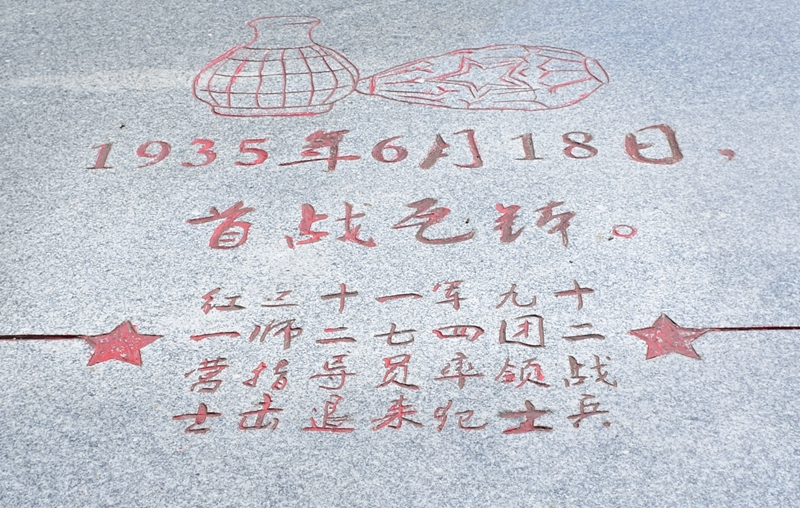 1935年6月18日，
首战瓦钵。
红三十一军九十
一师二七四团二
营指导员率领战
士击退来犯士兵